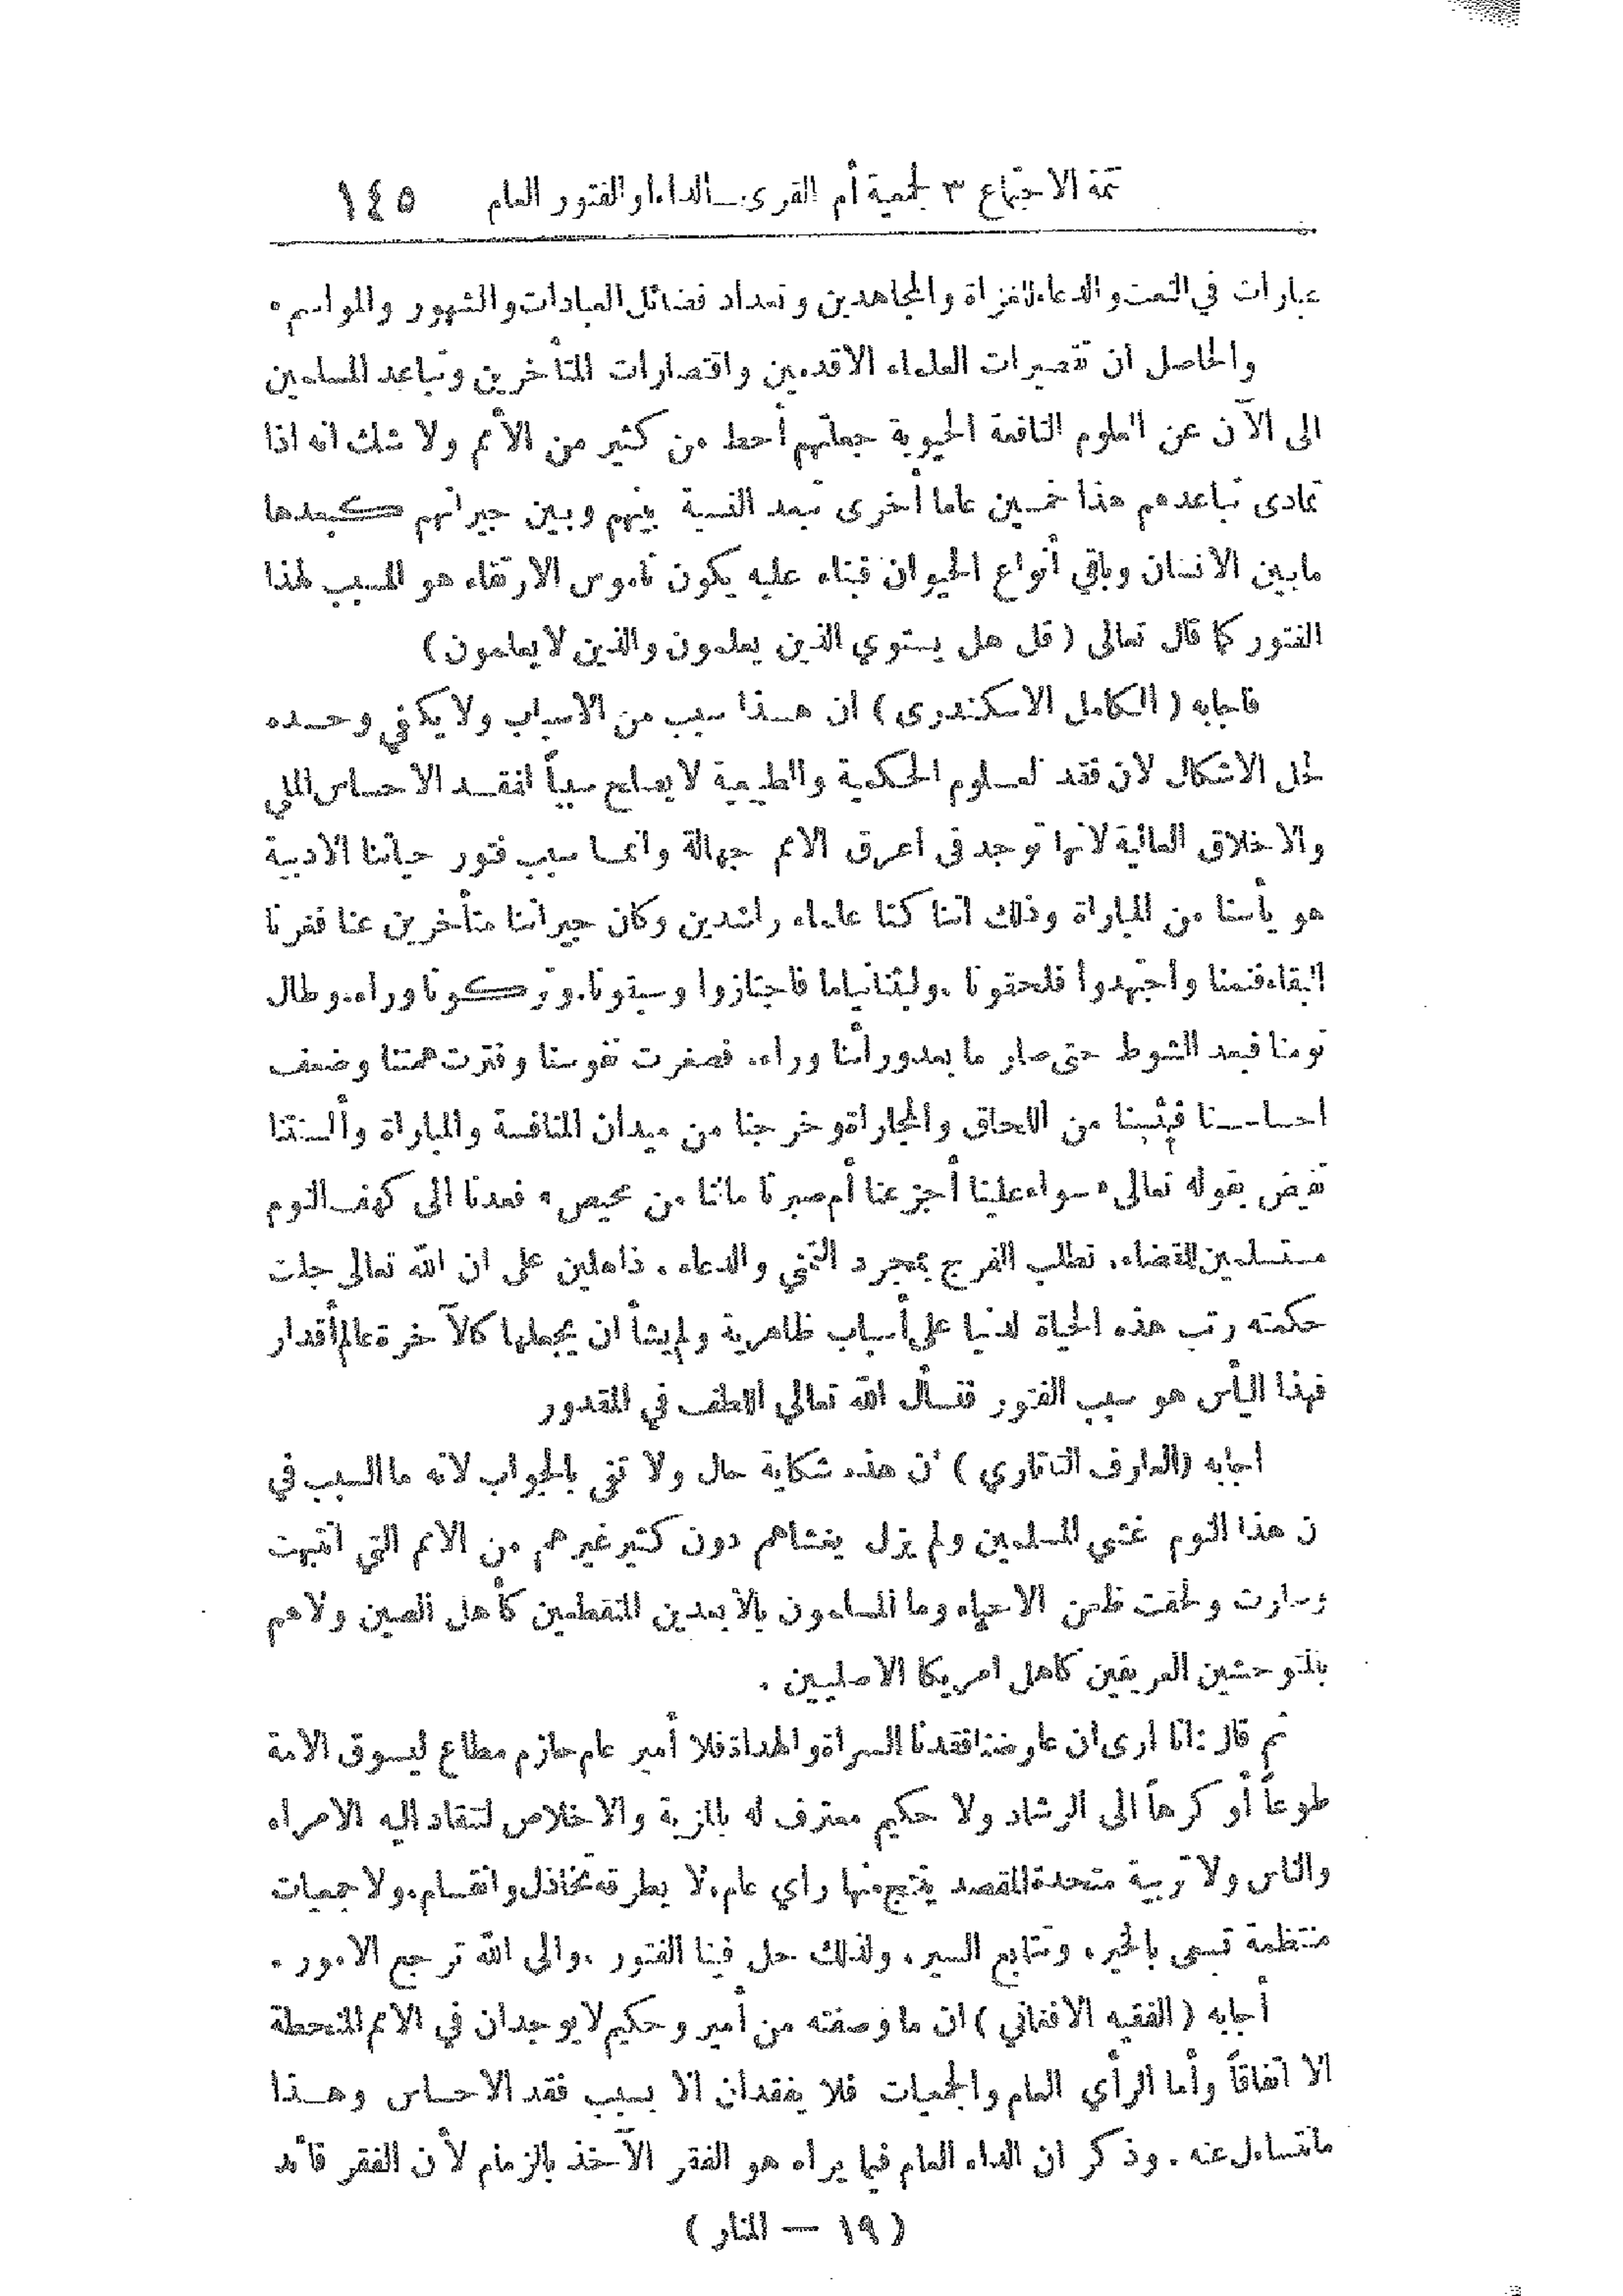 تتمة الاجتماع ٣ لجمعية أم القرى ــ الداء او الفتور العام ١٤٥
عبارات في النعت والدعاء للغزاة والمجاهدين وتعداد فضائل العبادات والشهور والمواسم.
والحاصل ان تقصيرات العلماء الاقدمين واقتصارات المتأخرين وتباعد المسلمين
الى الآن عن العلوم النافعة الحيوية جعلتهم أحط من كثير من الأمم ولا شك انه اذا
تمادى تباعدهم هذا خمسين عاما أخرى تبعد النسبة بينهم وبين جيرانهم كبعدها
مابين الانسان وباقي أنواع الحيوان فبناء عليه يكون ناموس الارتقاء هو المسبب لهذا
الفتور كما قال تعالى ( قل هل يستوي الذين يعلمون والذين لا يعلمون)
فاجابه ( الكامل الاسكندرى ) ان هـذا سبب من الاسباب ولا يكفي وحـده
لحل الاشكال لان فقد العـلوم الحكمية والطبيعية لا يصلح سبباً لفقـد الاحساس الملي
والاخلاق العالية لانها توجد فى اعرق الامم جهالة وانمـا سبب فتور حياتنا الادبية
هو يأسنا من المباراة وذلك اننا كنا علماء راشدين وكان جيراننا متأخرين عنا فغرنا
البقاء فنمنا واجتهدوا فلحقونا .ولبثنا نياما فاجتازوا وسبقونا.وتركونا وراء.وطال
نومنا فبعد الشوط حتى صار ما بعد ورائنا وراء. فصغرت نفوسنا وفترت همتنا وضعف
احساسـنا فيئسنا من اللحاق والمجاراة وخرجنا من ميدان المنافسة والمباراة وألسنتنا
تفيض بقوله تعالى « سواء علينا أجزعنا أم صبرنا مالنا من محيص » فعدنا الى كهف النوم
مستسلمين للقضاء. نطلب الفرج بمجرد التمني والدعاء . ذاهلين على ان الله تعالى جلت
حكمته رتب هذه الحياة الدنيا على أسباب ظاهرية ولم يشأ ان يجعلها كالآخرة عالم أقدار
فهذا اليأس هو سبب الفتور فنسأل الله تعالى اللطف في المقدور
اجابه ( العارف التاتاري ) ان هذه شكاية حال ولا تفي بالجواب لانه ما السبب في
ان هذا النوم غشي المسلمين ولم يزل يغشاهم دون كثير غيرهم من الامم التي انتبهت
وسارت ولحقت ظعن الاحياء وما المسلمون بالأبعدين المنقطعين كأهل الصين ولا هم
بالمتوحشين العريقين كاهل امريكا الاصليين .
ثم قال : انا ارى ان عارضنا فقدنا السراة والهداة فلا أمير عام حازم مطاع ليسوق الامة
طوعاً أو كرهاً الى الرشاد ولا حكيم معترف له بالمزية والاخلاص لتنقاد اليه الامراء
والناس ولا تربية متحدة المقصد ينتج منها راي عام.لا يطرقه تخاذل وانقسام.ولا جمعيات
منتظمة تسعى بالخير. وتتابع السير. ولذلك حل فينا الفتور .والى الله ترجع الامور .
أجابه ( الفقيه الافغاني ) ان ما وصفته من أمير وحكيم لا يوجدان في الامم المنحطة
الا اتفاقاً وأما الرأي العام والجمعيات فلا يفقدان الا بسبب فقد الاحساس وهـذا
مانتساءل عنه . وذكر ان الداء العام فيما يراه هو الفقر الآخذ بالزمام لأن الفقر قائد
( ١٩ — المنار )